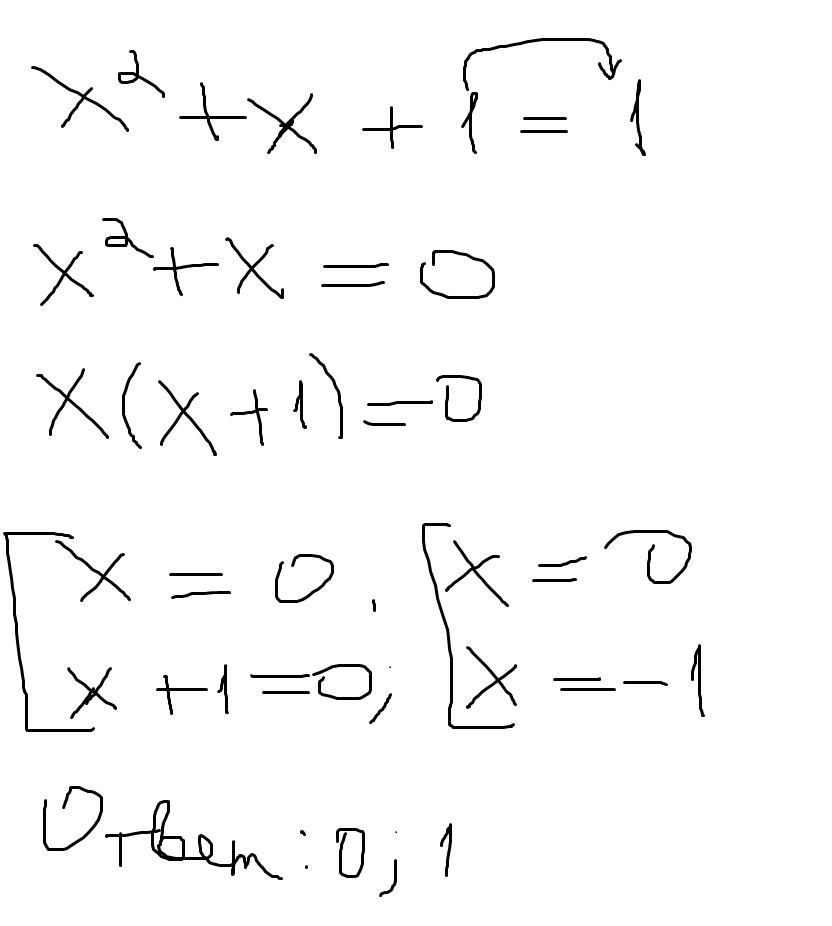 x² + x + 1 = 1
x² + x = 0
x(x+1) = 0
[ x = 0 . [ x = 0
x + 1 = 0; x = -1
Ответ: 0; 1